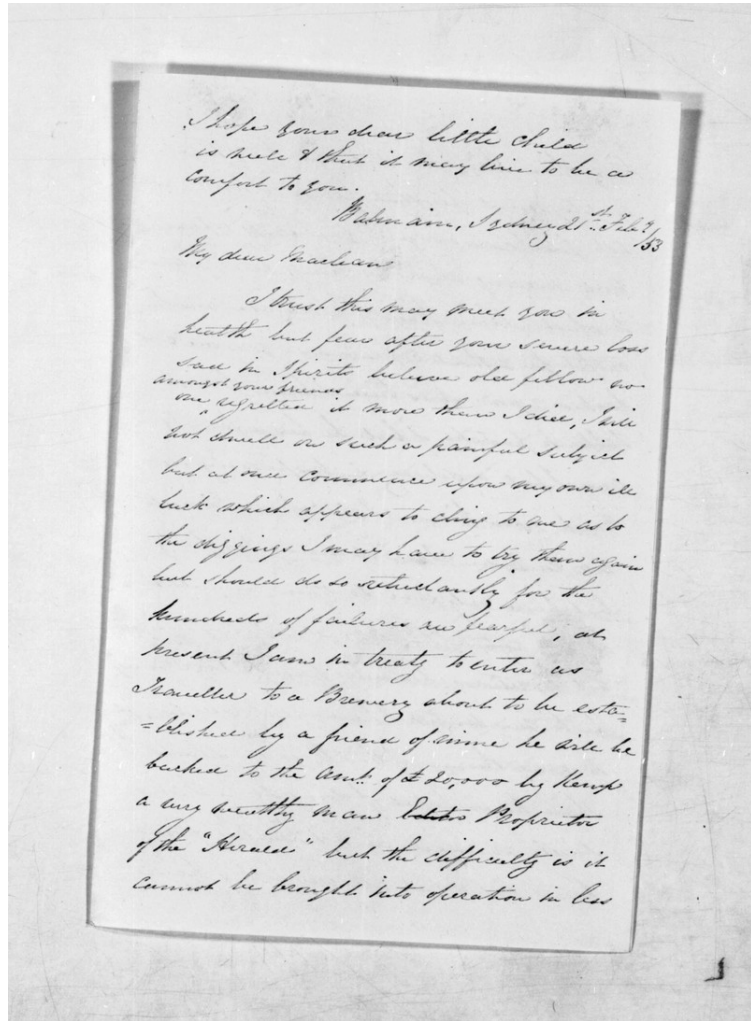 I hope your dear little child
is well & that it may live to be a
comfort to you.
Balmain, Sydney 21st Feby/53
My dear Maclean
I trust this may meet you in
health but fear after your severe loss
sad in Spirits believe old fellow no
amongst your friends
one regretted it more than I did, I will
not dwell on such a painful subject
but at once commence upon my own ill
luck which appears to cling to me as to
the diggings I may have to try them again
but should do so reluctantly for the
hundreds of failures are fearful, at
present I am in treaty to enter as
Traveller to a Brewery about to be esta=
=blished by a friend of mine he will be
backed to the amt. of £20,000 by Kemp
a very wealthy man Editor Proprietor
of the "Herald" but the difficulty is it
cannot be brought into operation in less